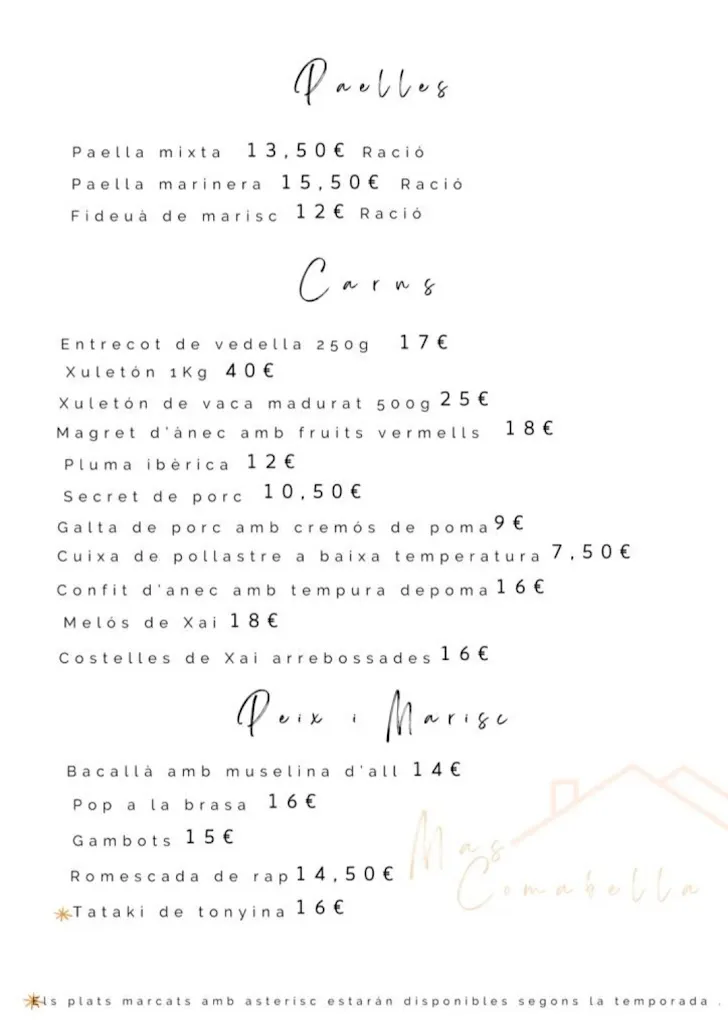 Paelles
Paella mixta 13,50€ Ració
Paella marinera 15,50€ Ració
Fideuà de marisc 12€ Ració
Carns
Entrecot de vedella 250g 17€
Xuletón 1Kg 40€
Xuletón de vaca madurat 500g 25€
Magret d'ànec amb fruits vermells 18€
Pluma ibèrica 12€
Secret de porc 10,50€
Galta de porc amb cremós de poma 9€
Cuixa de pollastre a baixa temperatura 7,50€
Confit d'anec amb tempura depoma 16€
Melós de Xai 18€
Costelles de Xai arrebossades 16€
Peix i Marisc
Bacallà amb muselina d'all 14€
Pop a la brasa 16€
Gambots 15€
Romescada de rap 14,50€
Tataki de tonyina 16€
Mas
Comabella
Els plats marcats amb asterisc estarán disponibles segons la temporada .